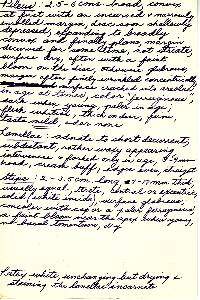 Pileus: 2.5-6 cm. broad, convex
at first with an incurved & narrowly
margin, soon shallowly
depressed, expanding to broadly
convex and finally plane, margin
decurved for some time, not striate,
surface dry, often with a faint
bloom on the disc, otherwise glabrous,
often finely wrinkled concentrically
surface cracked into areolae
in age at times, color "ferruginous",
dark when young, paler in age,
flesh whitish, thick on disc, firm,
taste mild, odor none
Lamellae: adnate to short decurrent,
subdistant, rather waxy appearing
intervenose & forked only in age, 3-4 mm
broad, cream buff, edges even, straight
Stipe: 2-3.5 cm. long, 7-17 mm thick,
usually equal, terete, central or eccentric,
solid (white inside), surface glabrous,
concolor with or a paler ferruginous,
a faint bloom near the apex when young,
no basal tomentum, dry
Latex white, unchanging but drying &
staining the lamellae incarnate